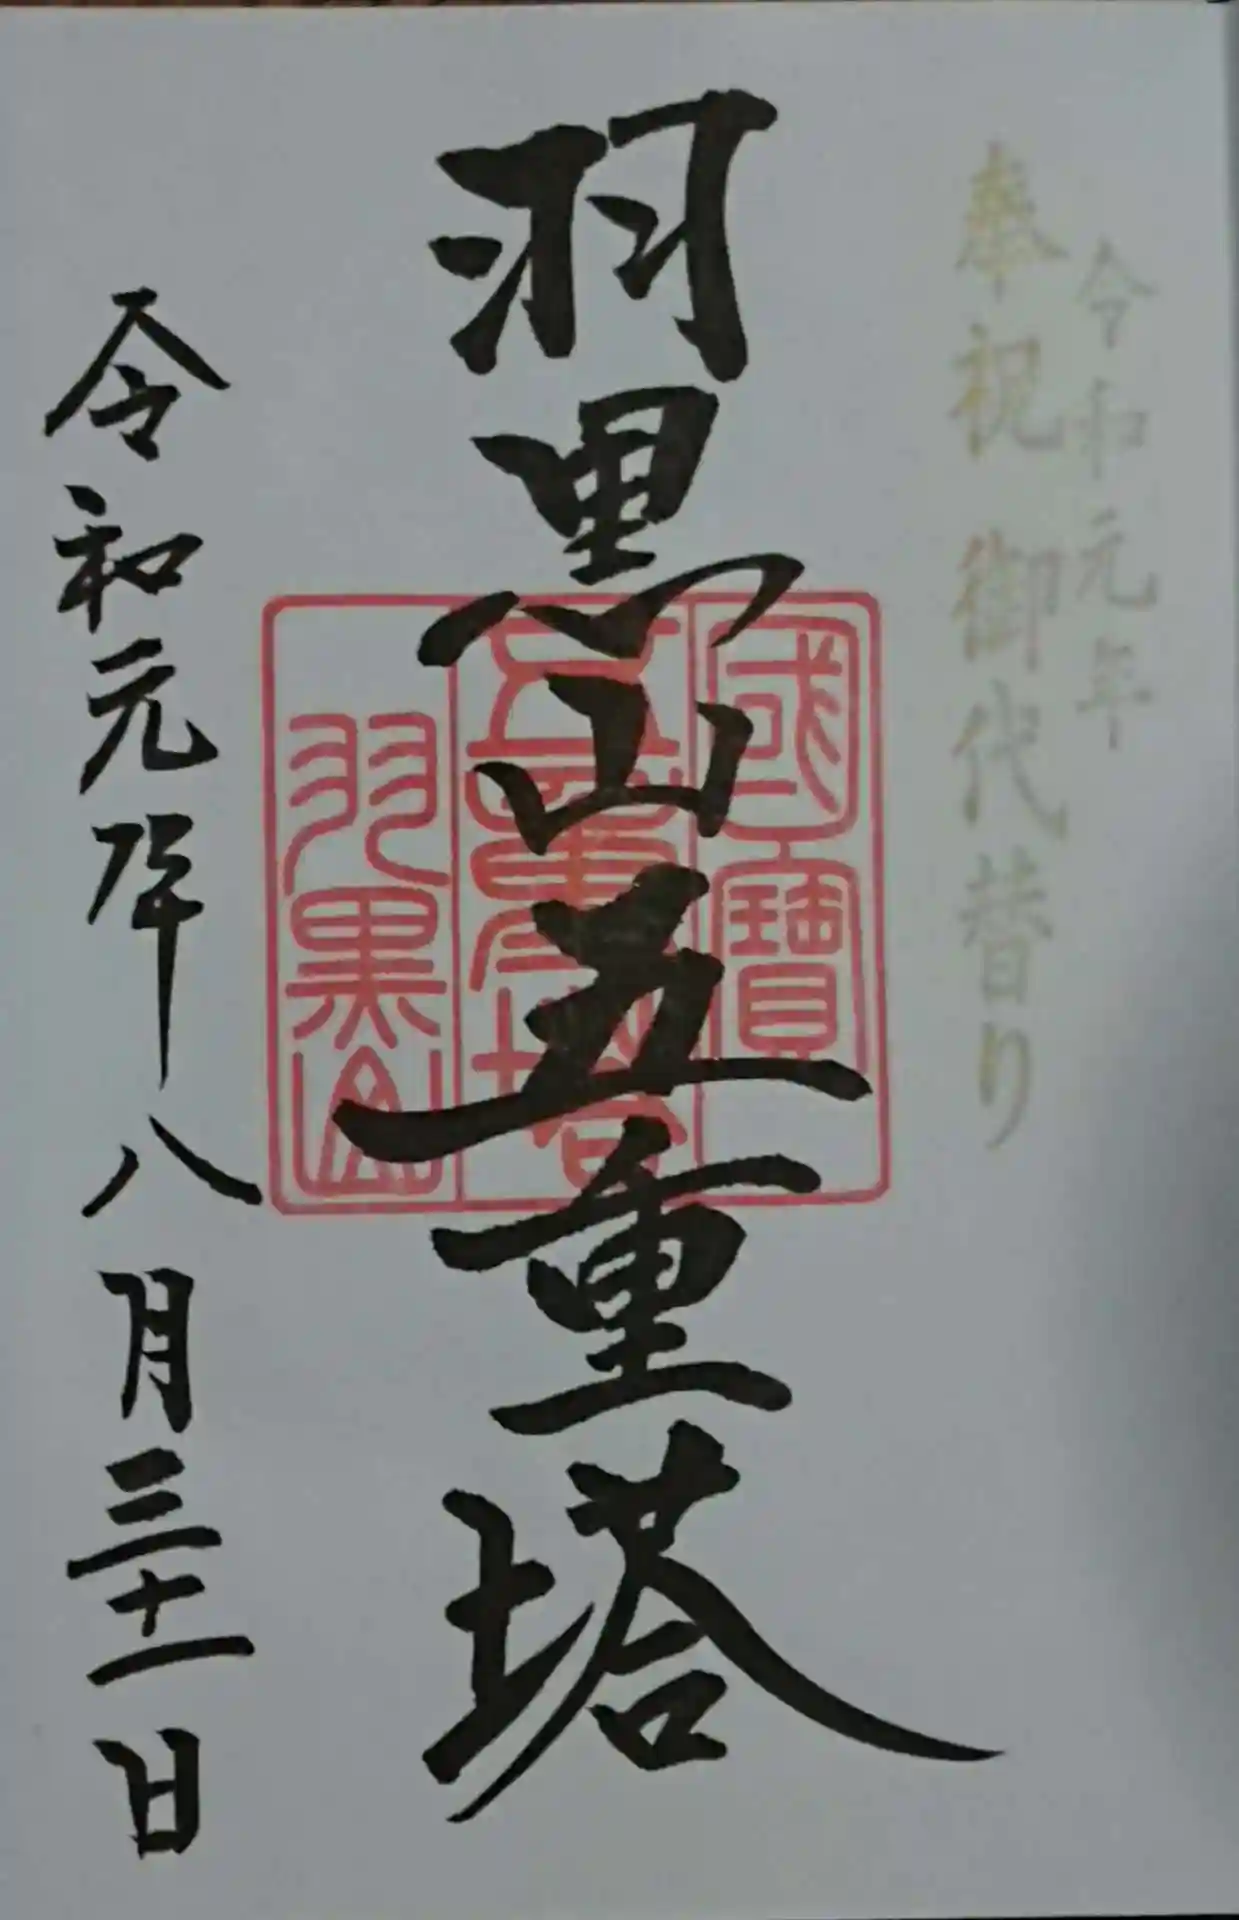 令和元年
奉祝 御代替り
羽黒山五重塔
國寶
五重塔
羽黒山
令和元年八月三十一日